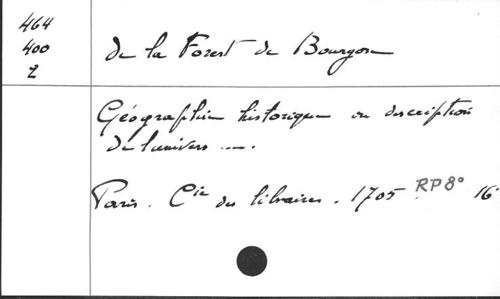 464
400
2
de la Forest de Bourgon
Géographie historique ou description
de l'univers ....
Paris. Cie des libraires. 1705 RP8° 16